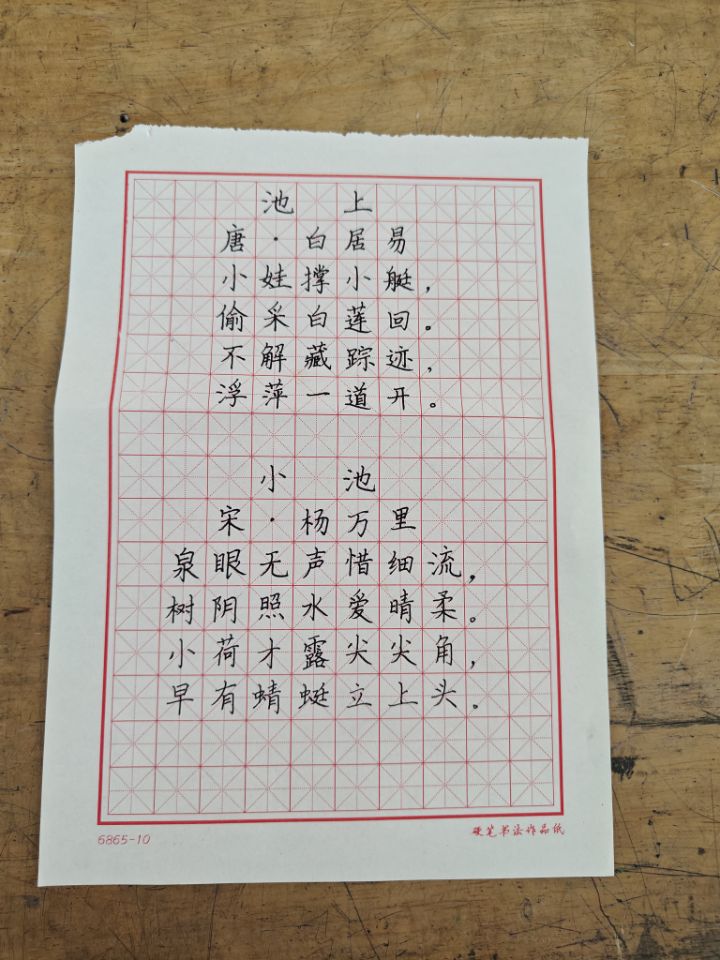 池上
唐·白居易
小娃撑小艇，
偷采白莲回。
不解藏踪迹，
浮萍一道开。
小池
宋·杨万里
泉眼无声惜细流，
树阴照水爱晴柔。
小荷才露尖尖角，
早有蜻蜓立上头.
6865-10
硬笔书法作品纸